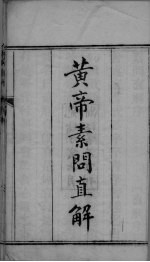 黄帝素問直解